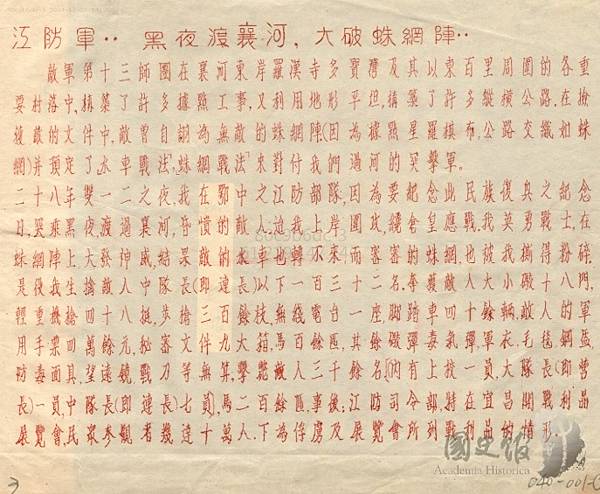 江防軍··黑夜渡襄河，大破蛛網陣··
敵軍第十三師團在襄河東岸羅漢寺多寶灣及其以東百里周圍的各重
要村落中，構築了許多據點工事，又利用地形平坦，構築了許多縱橫公路，在擄
獲敵的文件中，敵曾自認為無敵的蛛網陣(因為據點星羅棋布，公路交織如蛛
網)并預定了「水車戰法」「蛛網戰法」來對付我們過河的突擊軍。
二十八年雙一二之夜，我在鄂中之江防部隊，因為要紀念此民族復興之紀念
日，突乘黑夜渡過襄河，昏憒的敵人，迨我上岸圍攻，纔倉皇應戰，我英勇戰士，在
蛛網陣上大發神威，結果敵的水車也轉不來，而密密的蛛網也被我搗得粉碎，
是役我生擒敵人中隊長(即連長)以下一百三十二名，奪獲敵人大小砲十八門，
輕重機槍四十八挺，步槍三百餘枝，無綫電台一座，脚踏車四十餘輛，敵人的軍
用手票四萬餘元，秘密文件九大箱，馬百餘匹，其餘砲彈毒氣彈，軍衣，毛毯，鋼盔，
防毒面具，望遠鏡，戰刀等無算，擊斃敵人三千餘名，(內有上校一員，大隊長(即營
長)一員，中隊長(即連長)七員，馬二百餘匹，事後，江防司令部，特在宜昌開戰利品
展覽會，民眾參觀者幾達十萬人，下為俘虜及展覽會所列戰利品的情形
國史館
Academia Historica
040-001-0